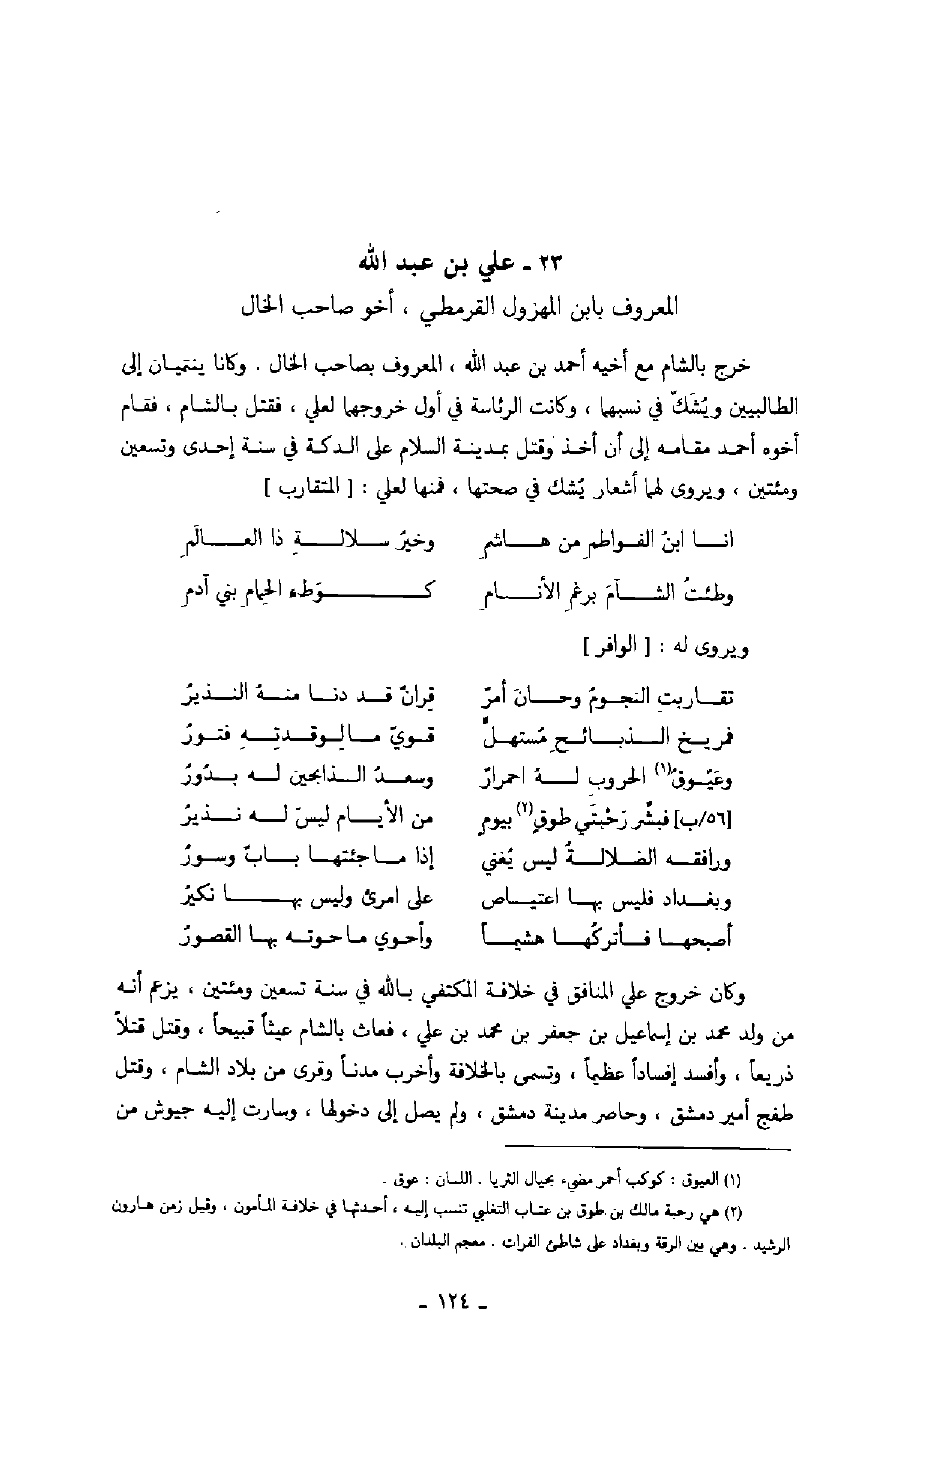 ٢٣ - علي بن عبد الله
المعروف بابن المهزول القرمطي ، أخو صاحب الخال
خرج بالشام مع أخيه أحمد بن عبد الله ، المعروف بصاحب الخال . وكانا ينتميان إلى
الطالبيين ويُشَكّ في نسبها ، وكانت الرئاسة في أول خروجها لعلي ، فقتل بالشام ، فقام
أخوه أحمد مقامه إلى أن أخذ وقتل بمدينة السلام على الدكة في سنة إحدى وتسعين
ومئتين ، ويروى لهما أشعار يُشك في صحتها ، فمنها لعلي : [ المتقارب ]
انا ابنُ الفواطمِ من هاشمِ وخيرُ سلالةِ ذا العالَمِ
وطئتُ الشآمَ برغمِ الأنامِ كوَطءِ الحِمامِ بني آدمِ
ويروى له : [ الوافر ]
تقاربت النجومُ وحانَ أمرٌ قِرانٌ قد دنا منهُ النذيرُ
فريخ الذبائح مُستهلٌ قويّ مالوقدته فتورُ
وعَيّوقُ(١) الحروب لهُ احمرارٌ وسعدُ الذابحين له بدُورُ
[٥٦/ب] فبشِّر رَحْبَتَي طوقٍ(٢) بيومٍ من الأيامِ ليسَ له نذيرُ
ورافقه الضلالةُ ليس يُغني إذا ما جئتها بابٌ وسورُ
وبغداد فليس بها اعتياص على امرئ وليس بها نكيرُ
أصبحها فأتركها هشيماً وأحوي ما حوته بها القصورُ
وكان خروج علي المنافق في خلافة المكتفي بالله في سنة تسعين ومئتين ، يزعم أنه
من ولد محمد بن إسماعيل بن جعفر بن محمد بن علي ، فعاث بالشام عيثاً قبيحاً ، وقتل قتلاً
ذريعاً ، وأفسد إفساداً عظيماً ، وتسمى بالخلافة وأخرب مدناً وقرى من بلاد الشام ، وقتل
طفج أمير دمشق ، وحاصر مدينة دمشق ، ولم يصل إلى دخولها ، وسارت إليه جيوش من
(١) العيوق : كوكب أحمر مضيء بحيال الثريا . اللسان : عوق .
(٢) هي رحبة مالك بن طوق بن عتاب التغلبي تنسب إليه ، أحدثها في خلافة المأمون ، وقيل زمن هارون
الرشيد . وهي بين الرقة وبغداد على شاطئ الفرات . معجم البلدان .
- ١٢٤ -